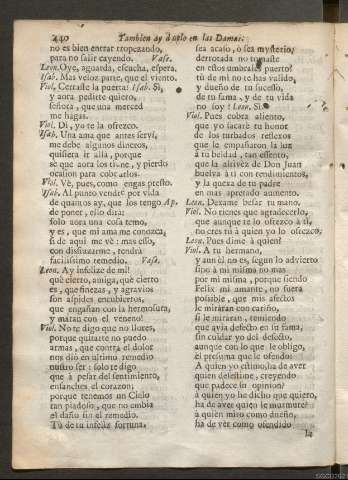 240 Tambien ay duelo en las Damas.
no es bien entrar tropezando,
para no salir cayendo. Vase.
Leon. Oye, aguarda, escucha, espera.
Isab. Mas veloz parte, que el viento.
Viol. Cerraste la puerta? Isab. Si,
y aora pedirte quiero,
señora, que una merced
me hagas.
Viol. Di, yo te la ofrezco.
Isab. Una ama que antes serví,
me debe algunos dineros,
quisiera ir allà, porque
sè que aora los tiene, y pierdo
ocasion para cobrarlos.
Viol. Vè, pues, como engas presto.
Isab. Al punto vendrè por vida
de quantos ay, que los tengo Ap.
de poner, o lo diga
solo aora una cosa temo,
y es, que mi ama me conozca,
si de aqui me vè: mas esso,
con disfrazarme, tendrà
facilissimo remedio. Vase.
Leon. Ay infelize de mi!
què cierto, amiga, què cierto
es, que finezas, y agravios
son aspides encubiertos,
que engañan con la hermosura,
y matan con el veneno!
Viol. No te digo que no llores,
porque quitarte no puedo
armas, que contra el dolor
nos diò en ultimo remedio
nuestro ser: solo te digo
que à pesar del sentimiento,
ensanches el corazon;
porque tenemos un Cielo
tan piadoso, que no embia
el daño sin el remedio.
Tù de tu infeliz fortuna,
sea acaso, ò sea mysterio,
derrotada no tomaste
en estos umbrales puerto?
tù de mi no te has valido,
y dueño de tu sucesso,
de tu fama, y de tu vida
no soy? Leon. Si.
Viol. Pues cobra aliento,
que yo sacarè tu honor
de los turbados reflexos
que le empañaron la luz
à tu beldad, tan essento,
que la altivèz de Don Juan
buelva à ti con rendimientos,
y la quexa de tu padre
en mas apretado aumento.
Leon. Dexame besar tu mano.
Viol. No tienes que agradecerlo,
que aunque te lo ofrezco à ti,
no eres tù à quien yo lo ofrezco.
Leon. Pues dime à quien?
Viol. A tu hermano,
y aun èl no es, segun lo advierto
sino à mi misma no mas
por mi misma, porque siendo
Felix mi amante, no fuera
possible, que mis afectos
le miraran con cariño,
si le miràran, temiendo
que avia defecto en su fama,
sin cuidar yo del defecto,
aunque con lo que le obligo,
èl presuma que le ofendo:
A quien yo estimo, ha de aver
quien desestime, creyendo
que padece su opinion?
à quien yo he dicho que quiero,
ha de aver quien le murmure?
à quien miro como dueño,
ha de ver como ofendido
la